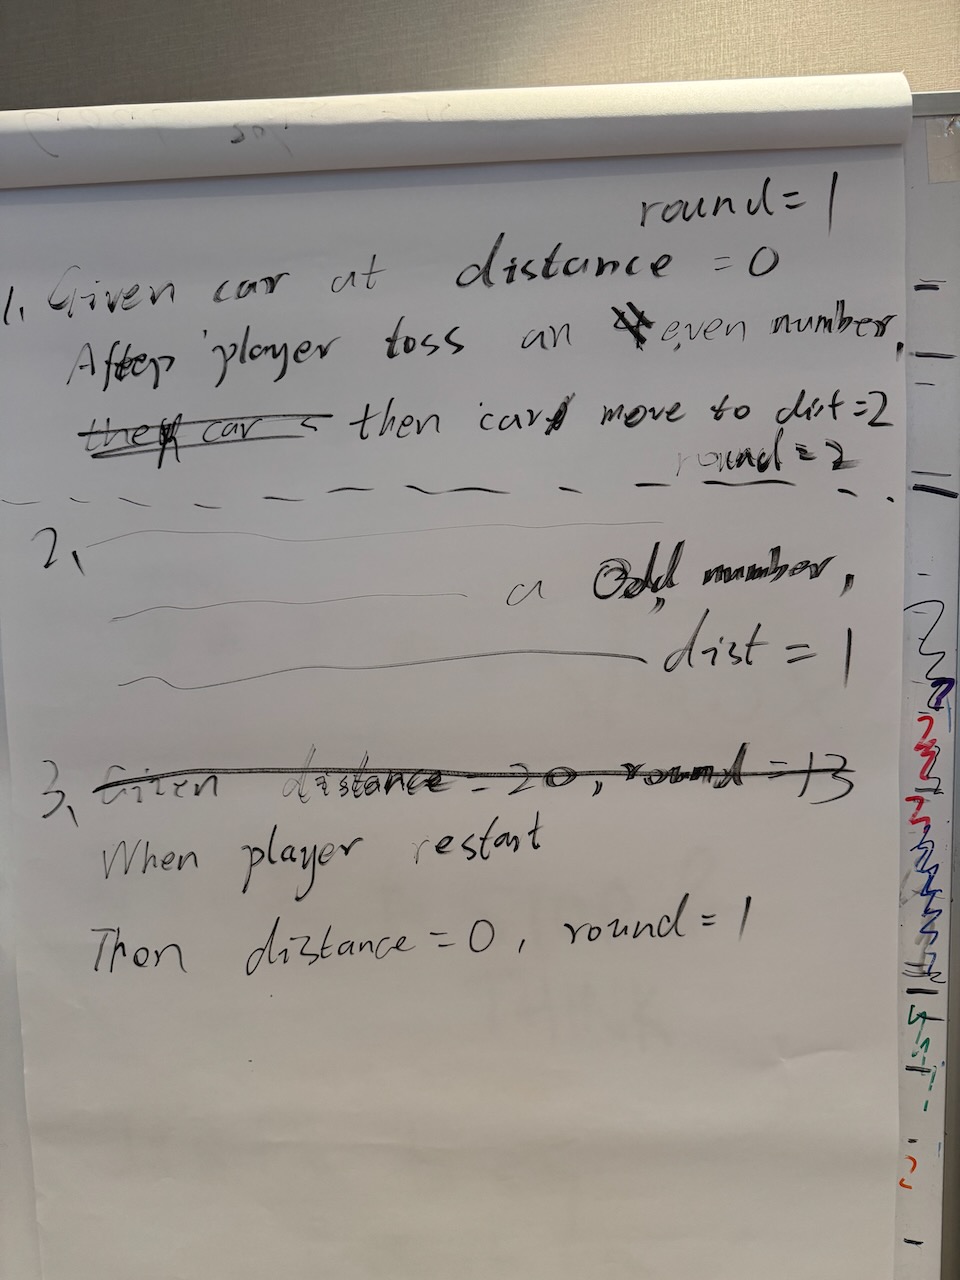 round = 1
1. Given car at distance = 0
After player toss an even number,
then car move to dist = 2
round = 2
2.
a Odd number,
dist = 1
3. Given distance = 20, round = 13
When player restart
Then distance = 0, round = 1